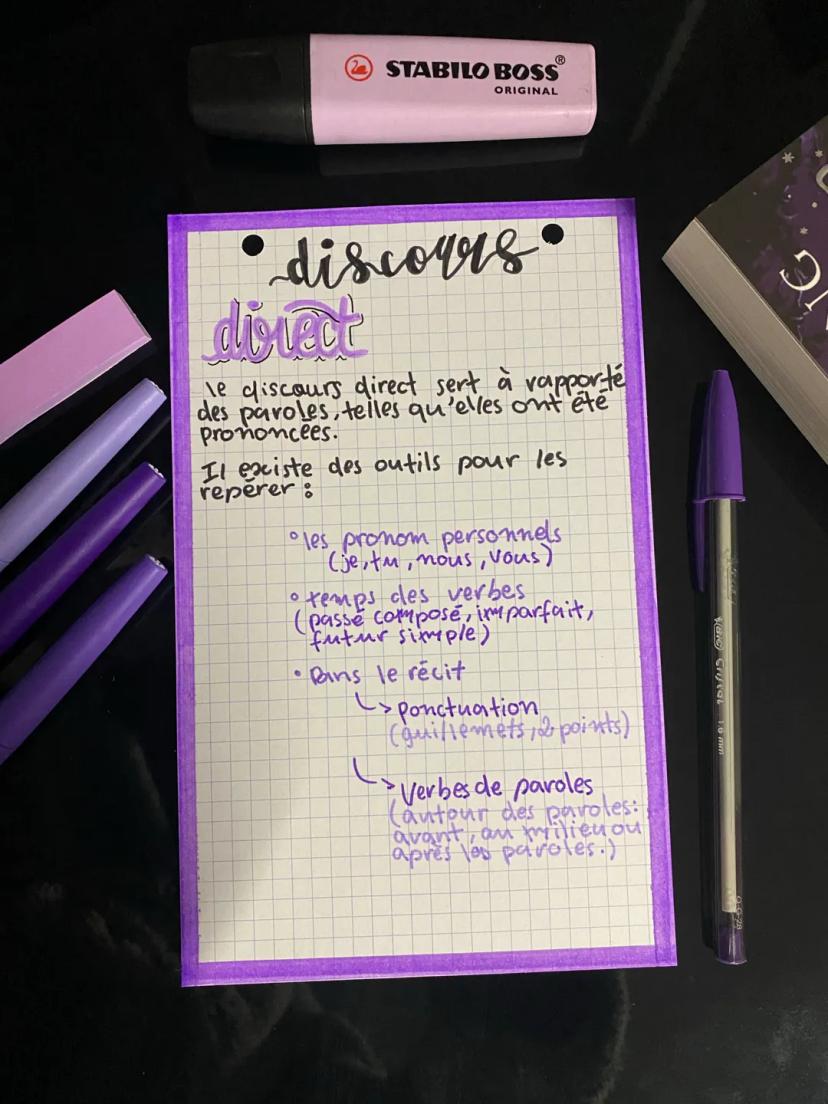 STABILO BOSS®
ORIGINAL
discours
direct
le discours direct sert à rapporté
des paroles, telles qu'elles ont été
prononcées.
Il existe des outils pour les
repérer :
° les pronom personnels
(je, tu, nous, vous)
° temps des verbes
(passé composé, imparfait,
futur simple)
• Dans le récit
↳ ponctuation
(guillemets, 2 points)
↳ Verbes de paroles
(autour des paroles:
avant, au milieu ou
après les paroles.)
Cristal 1.0 mm